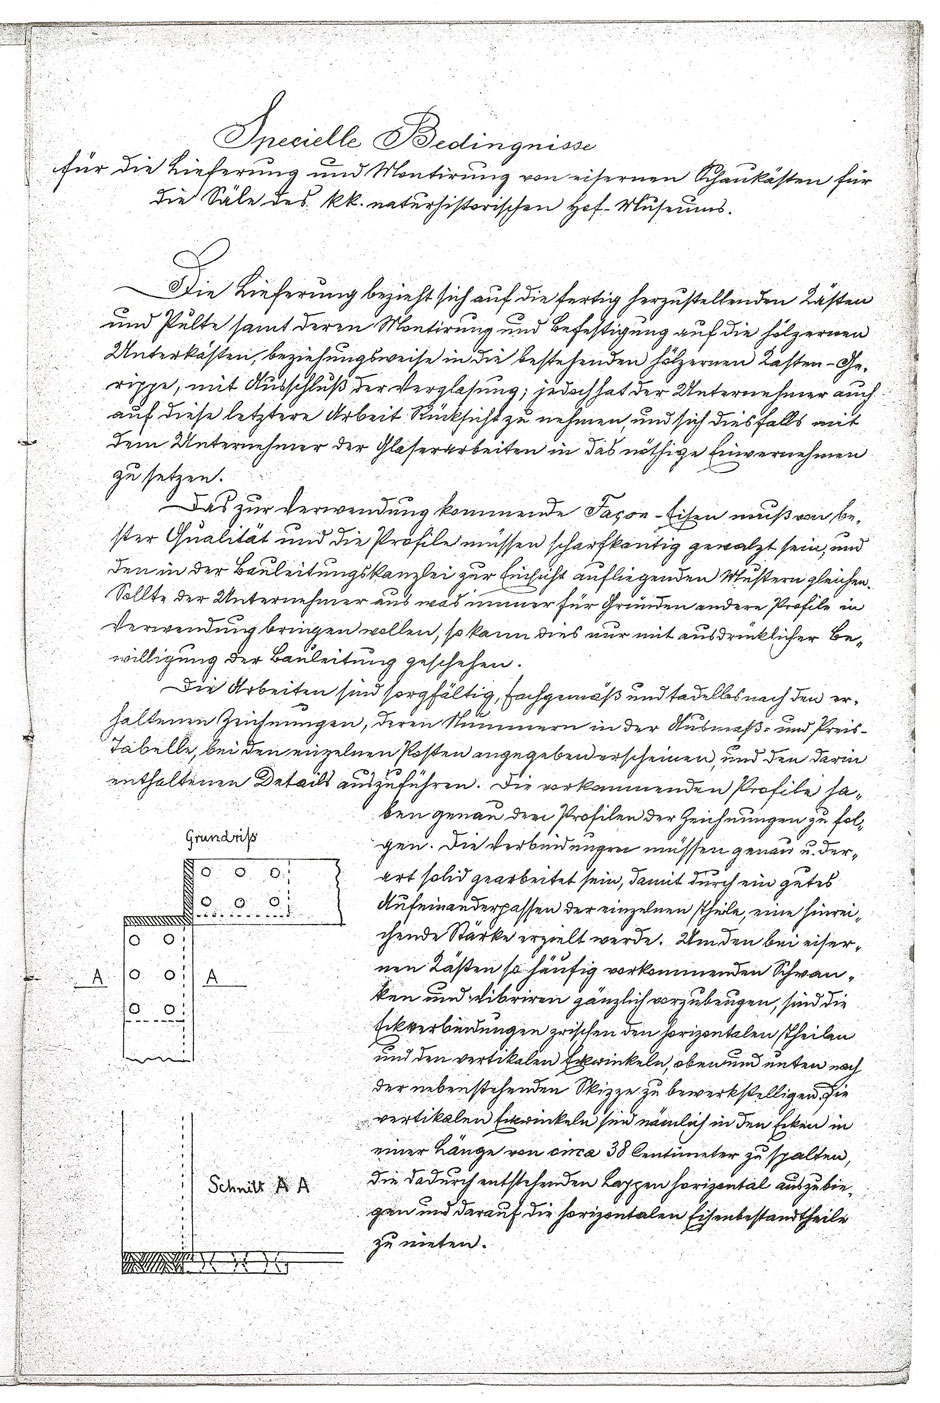 Specielle Bedingnisse
für die Lieferung und Montirung von eisernen Schaukästen für
die Säle des kk. naturhistorischen Hof-Museums.
Die Lieferung bezieht sich auf die fertig herzustellenden Kästen
und Pulte samt deren Montirung und Befestigung auf die hölzernen
Unterkästen, beziehungsweise in die bestehenden hölzernen Kasten-Ge-
rippe, mit Ausschluß der Verglasung; jedoch hat der Unternehmer auch
auf diese letztere Arbeit Rücksicht zu nehmen, und sich diesfalls mit
dem Unternehmer der Glaserarbeiten in das nöthige Einvernehmen
zu setzen.
Das zur Verwendung kommende Façon-Eisen muß von be-
ster Qualität und die Profile müssen scharfkantig gewalzt sein, und
den in der Bauleitungskanzlei zur Einsicht aufliegenden Mustern gleichen.
Sollte der Unternehmer aus was immer für Gründen andere Profile in
Verwendung bringen wollen, so kann dies nur mit ausdrücklicher Be-
willigung der Bauleitung geschehen.
Die Arbeiten sind sorgfältig, fachgemäß und tadellos nach den er-
haltenen Zeichnungen, deren Nummern in der Ausmaß- und Preis-
Tabelle, bei den einzelnen Posten angegeben erscheinen, und den darin
enthaltenen Details auszuführen. Die vorkommenden Profile ha-
ben genau den Profilen der Zeichnungen zu fol-
gen. Die Verbindungen müssen genau u. der-
art solid gearbeitet sein, damit durch ein gutes
Aufeinanderpassen der einzelnen Theile, eine hinrei-
chende Stärke erzielt werde. Um den bei eiser-
nen Kästen so häufig vorkommenden Schwan-
ken und Vibriren gänzlich vorzubeugen, sind die
Eckverbindungen zwischen den horizontalen Theilen
und den vertikalen Eckwinkeln, oben und unten nach
der nebenstehenden Skizze zu bewerkstelligen. Die
vertikalen Eckwinkeln sind nämlich in den Ecken in
einer Länge von circa 38 Centimeter zu spalten,
die dadurch entstehenden Lappen horizontal auszubie-
gen und darauf die horizontalen Eisenbestandtheile
zu nieten.
Grundriß
A A
Schnitt A A